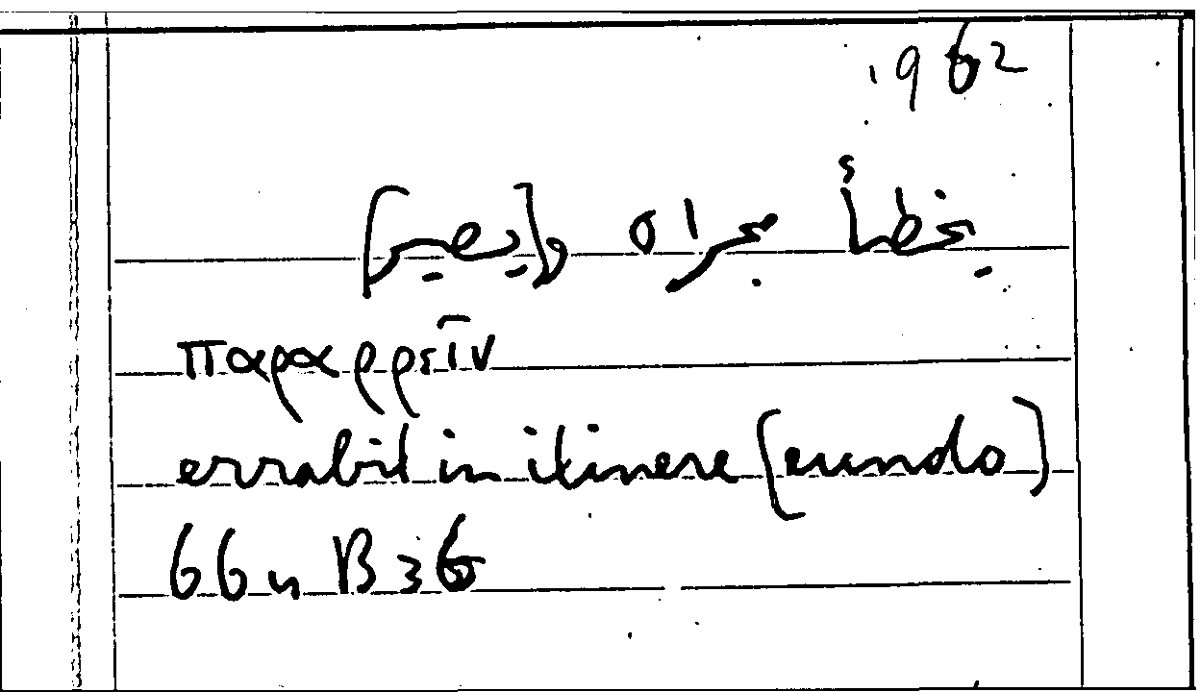 1962
يخطأ مجراه و[يصير]
παραρρεῖν
errabit in itinere [eundo]
66 u B 36